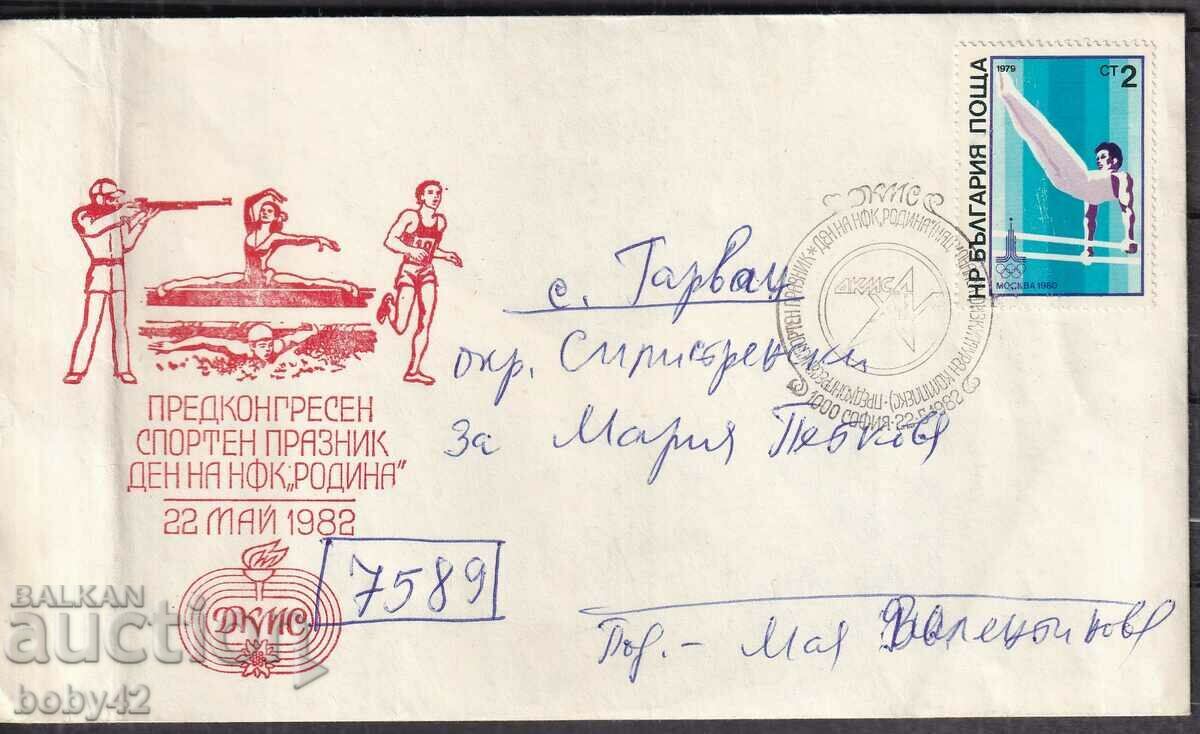 1979
СТ 2
НР БЪЛГАРИЯ ПОЩА
МОСКВА 1980
ДКМС
ДКМС
1000 СОФИЯ · 22.5.1982
ПРЕДКОНГРЕСЕН СПОРТЕН ПРАЗНИК * ДЕН НА НФК „РОДИНА"
10
с. Гарван
окр. Силистренски
за Мария Петкова
ПРЕДКОНГРЕСЕН
СПОРТЕН ПРАЗНИК
ДЕН НА НФК „РОДИНА"
22 МАЙ 1982
ДКМС
7589
Под. - Мая Валентинова
BALKAN
auction
boby42